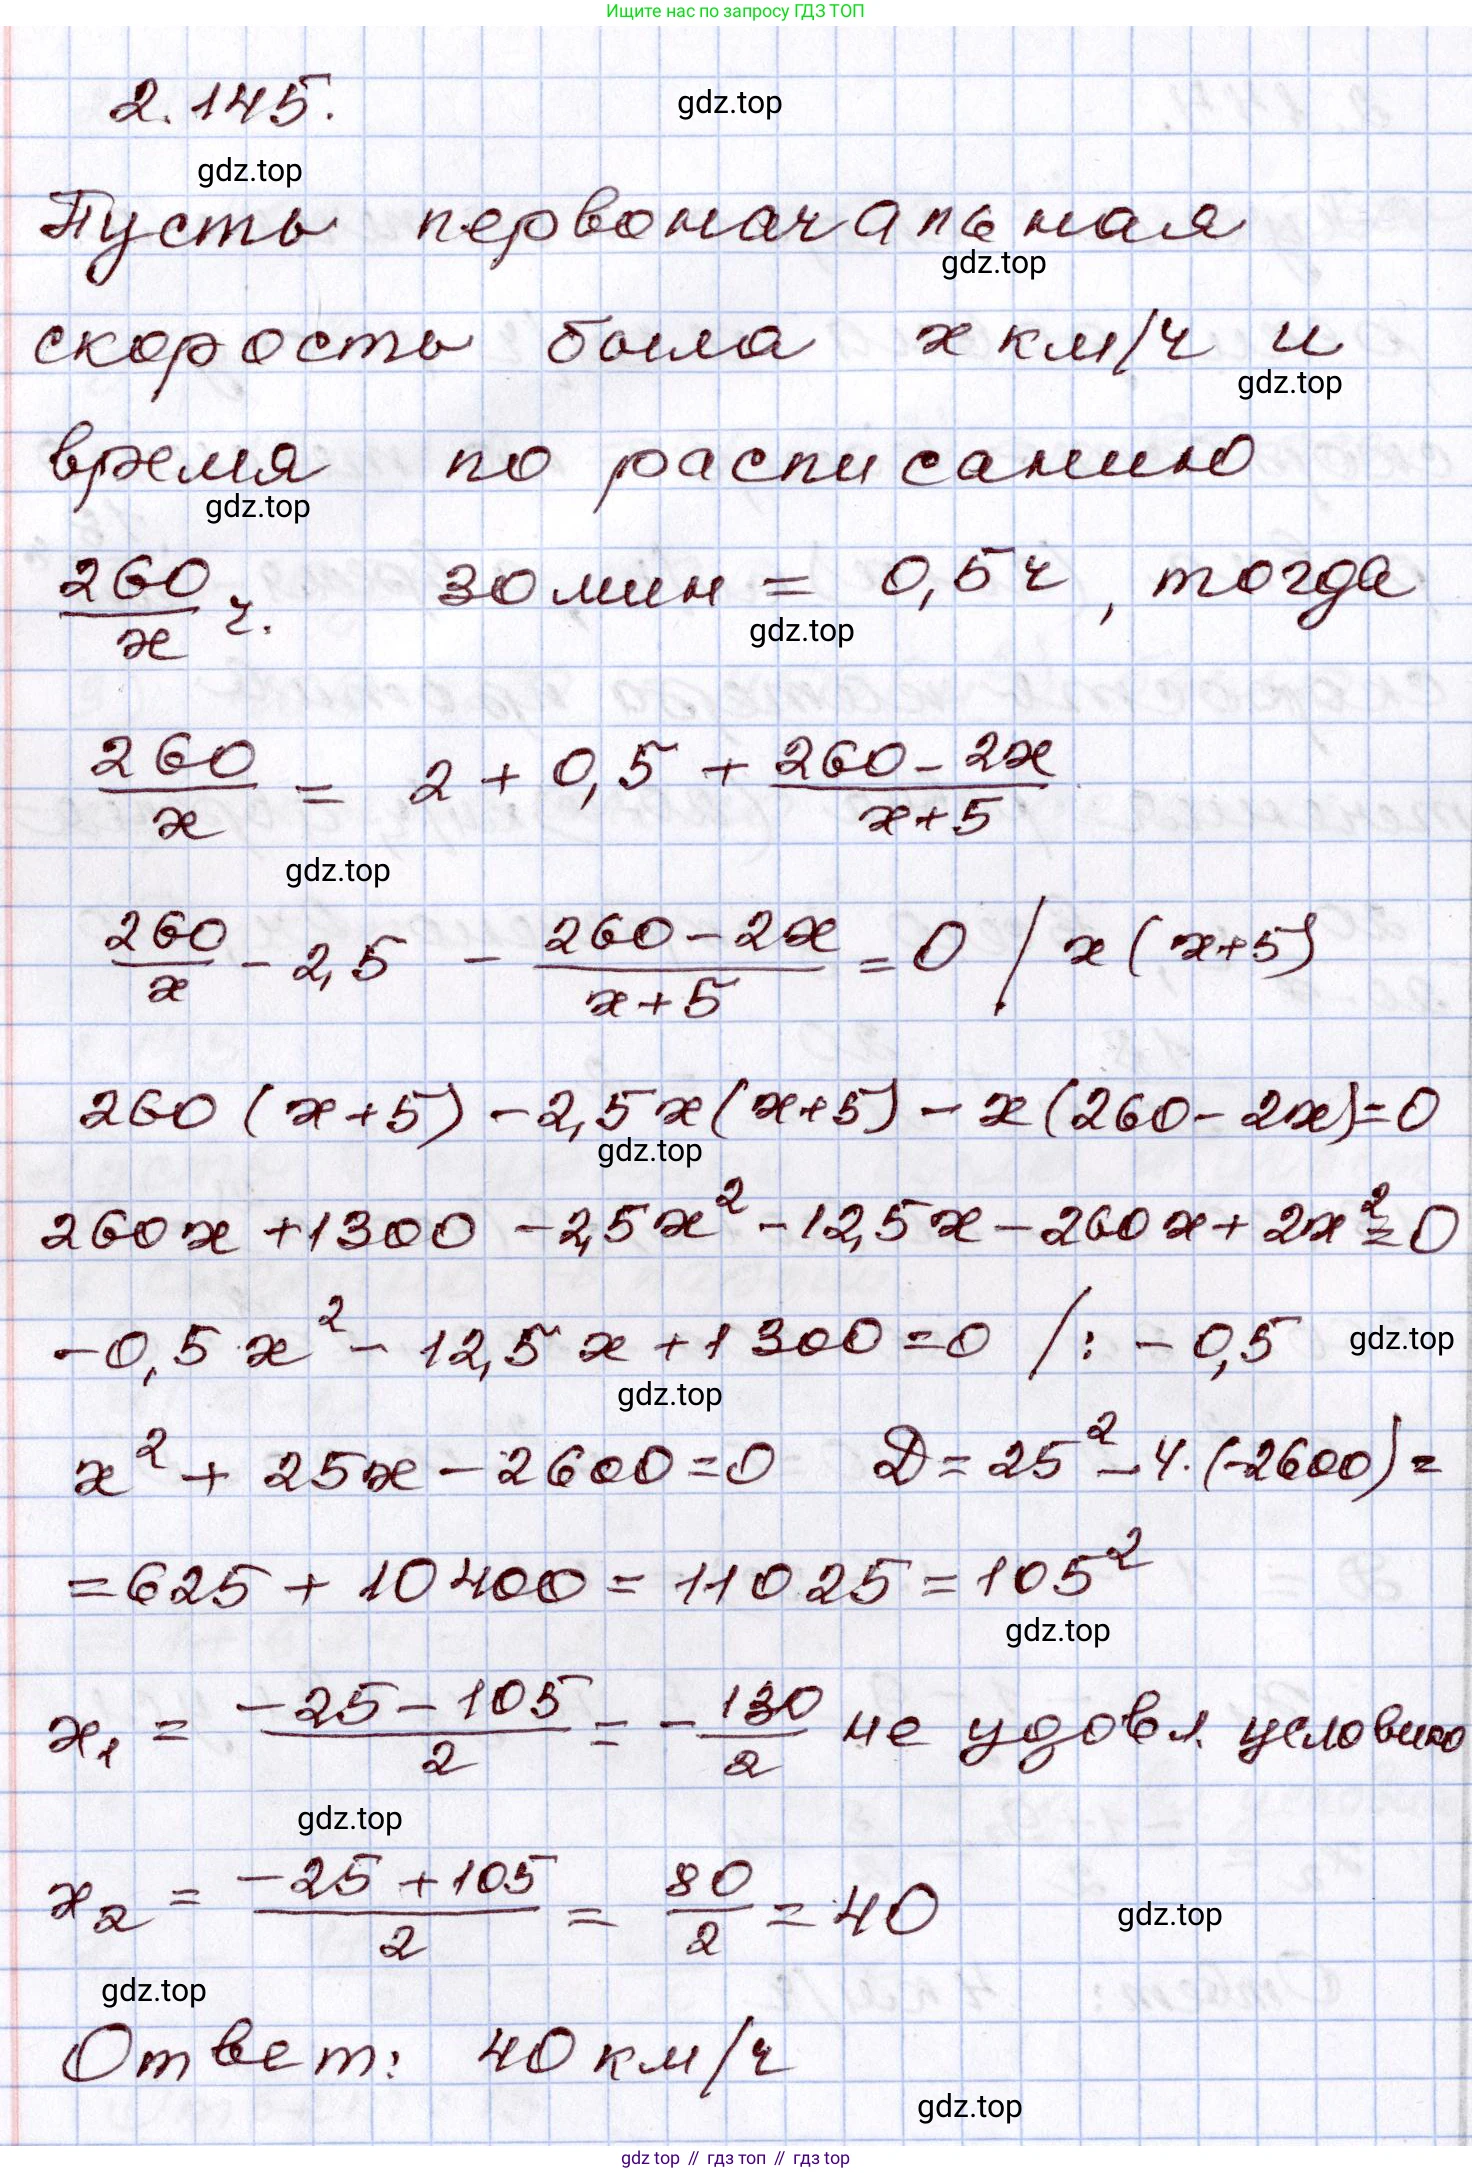 Ищите нас по запросу ГДЗ ТОП
2.145.
gdz.top
gdz.top
Пусть первоначальная
gdz.top
скорость была x км/ч и
gdz.top
время по расписанию
gdz.top
260/x ч. 30 мин = 0,5 ч, тогда
gdz.top
260/x = 2 + 0,5 + (260 - 2x)/(x+5)
gdz.top
260/x - 2,5 - (260 - 2x)/(x+5) = 0 / x(x+5)
260(x+5) - 2,5x(x+5) - x(260 - 2x) = 0
gdz.top
260x + 1300 - 2,5x² - 12,5x - 260x + 2x² = 0
-0,5x² - 12,5x + 1300 = 0 /: -0,5
gdz.top
gdz.top
x² + 25x - 2600 = 0 D = 25² - 4·(-2600) =
= 625 + 10400 = 11025 = 105²
gdz.top
x₁ = (-25 - 105)/2 = -130/2 не удовл. условию
gdz.top
x₂ = (-25 + 105)/2 = 80/2 = 40
gdz.top
gdz.top
Ответ: 40 км/ч
gdz.top
gdz top // гдз топ // гдз top